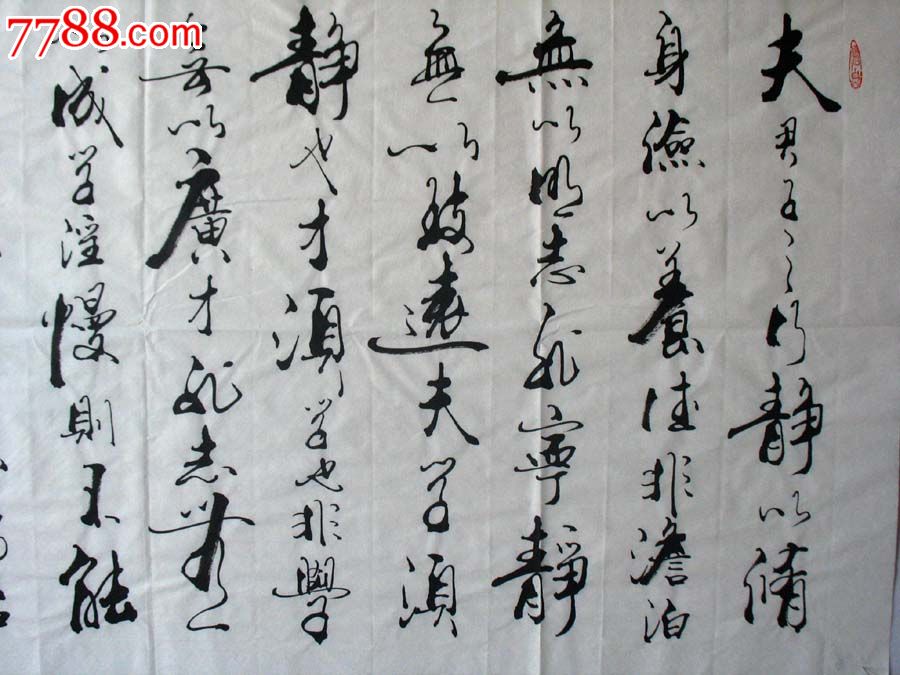 夫君子之行靜以脩
身儉以養德非澹泊
無以明志非寧靜
無以致遠夫学須
靜也才須学也非學
無以廣才非志無以
成学淫慢則不能
7788.com